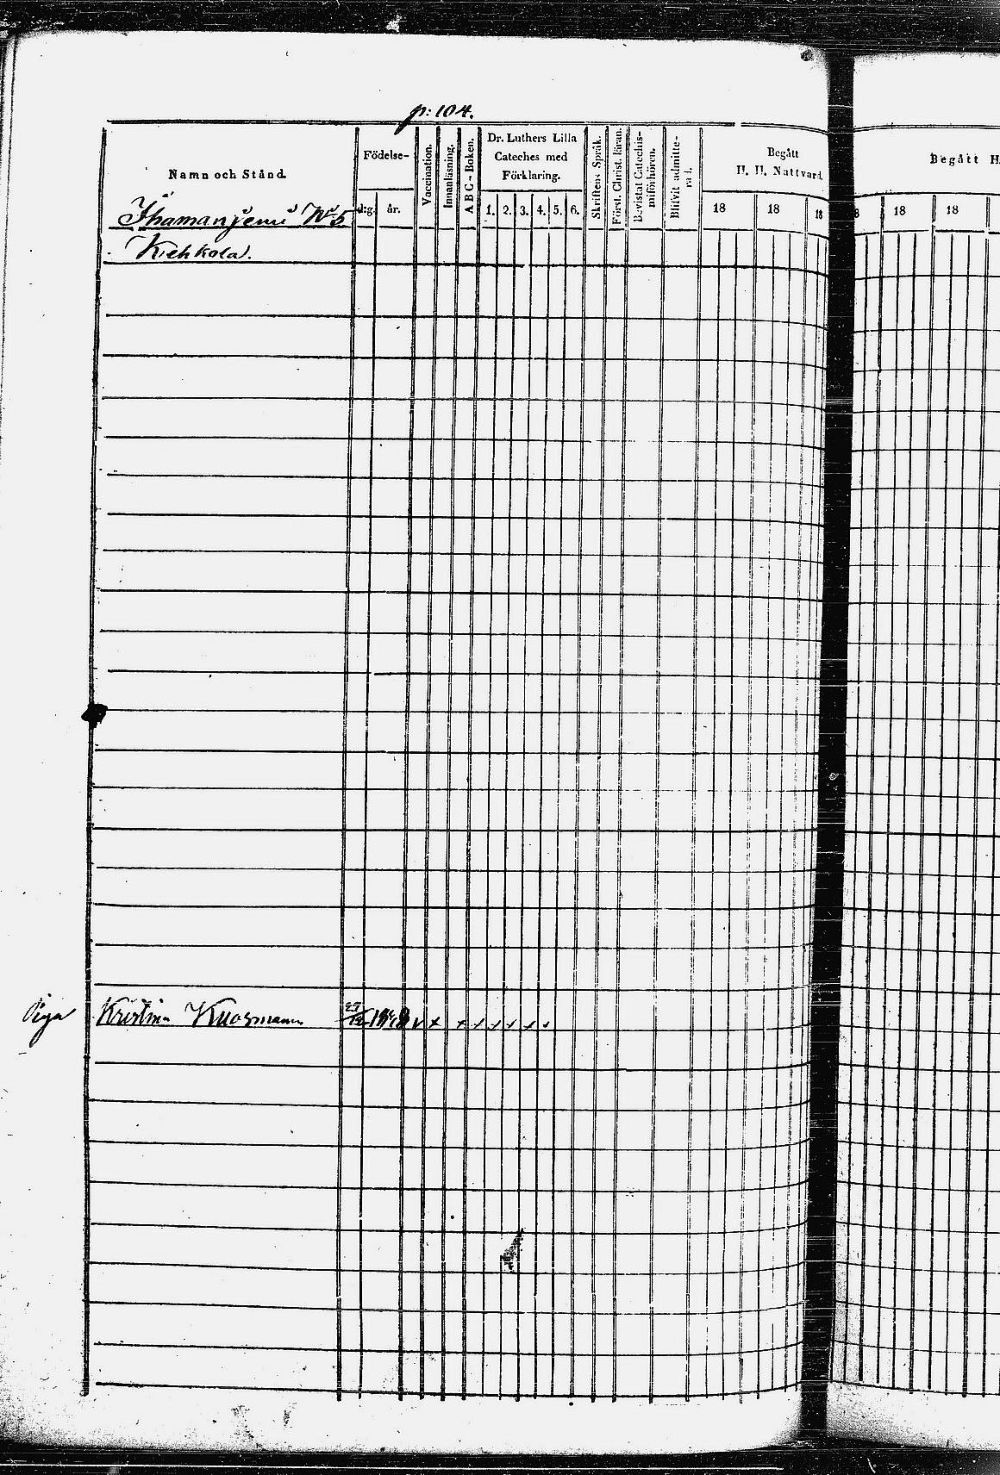 p: 104.
Namn och Stånd.
Födelse-
d:g.
år.
Vaccination.
Innanläsning.
A B C - Boken.
Dr. Luthers Lilla
Cateches med
Förklaring.
1. 2. 3. 4. 5. 6.
Skriftens Språk.
Först. Christ. läran.
Bevistat Catechis-
miförhören.
Blifvit admitte-
rad.
Begått
H. H. Nattvard
18 18 18
Begått H.
8 18 18
Ihamaniemi № 5.
Kehkola.
Piga Kristina Kuosmanen 27/12 1848 v x x x x x x x